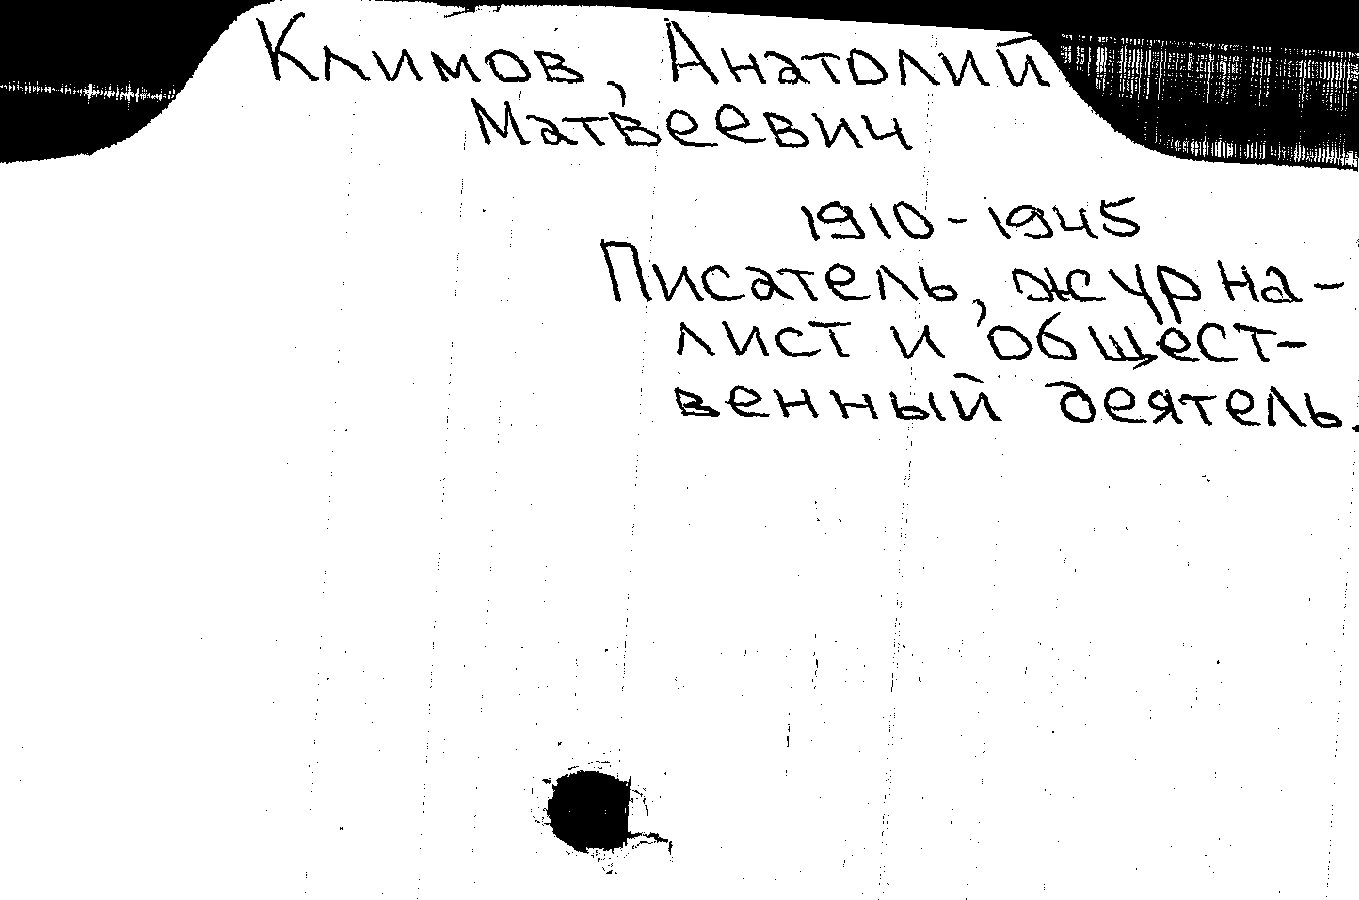 Климов, Анатолий
Матвеевич
1910-1945
Писатель, журна-
лист и общест-
венный деятель.